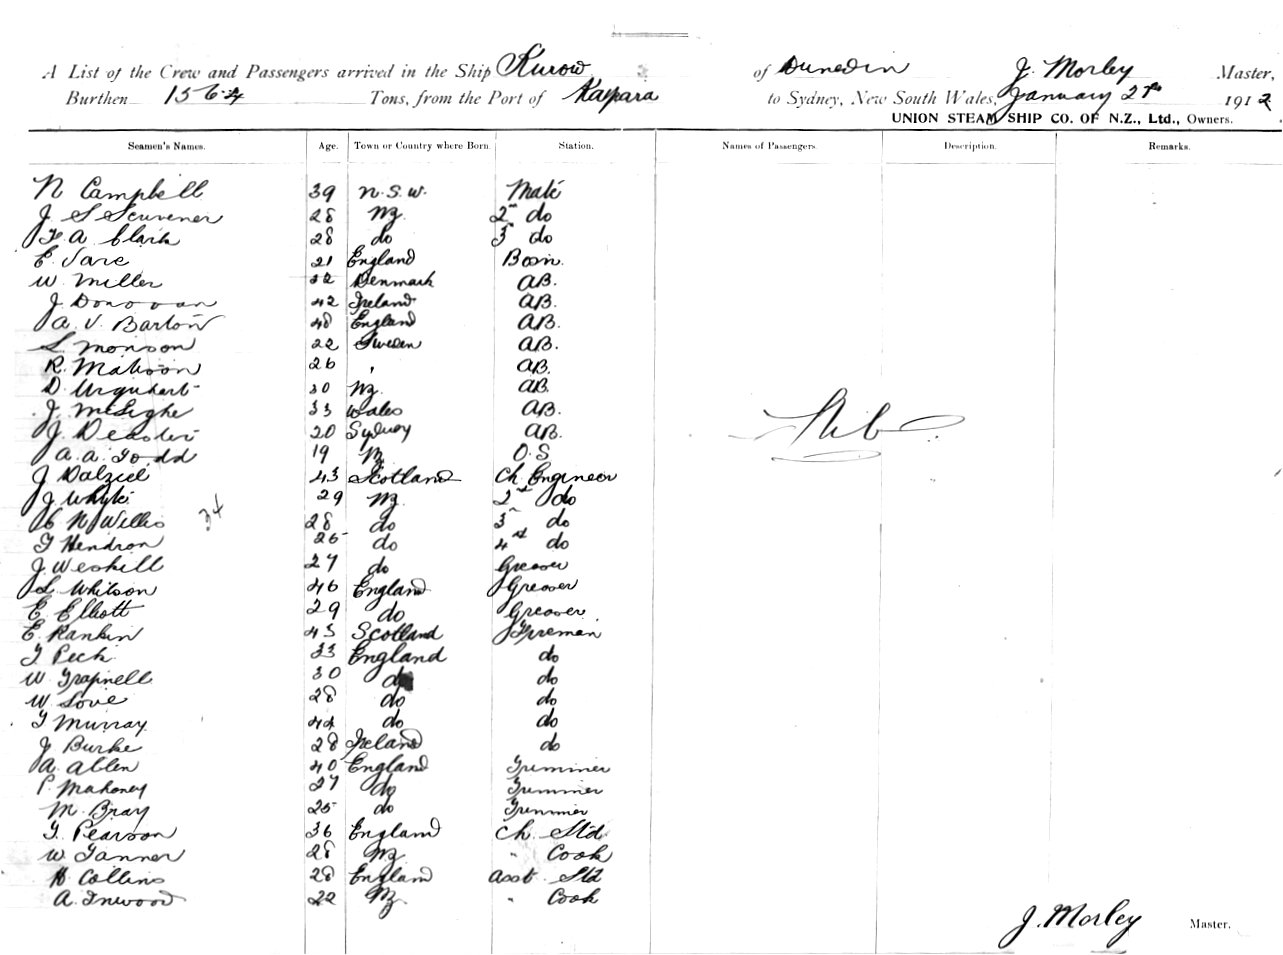 A List of the Crew and Passengers arrived in the Ship Kurow of Dunedin J. Morley Master,
Burthen 1564 Tons, from the Port of Kaipara to Sydney, New South Wales, January 27th 1912
UNION STEAM SHIP CO. OF N.Z., Ltd., Owners.
Seamen's Names. Age. Town or Country where Born. Station. Names of Passengers. Description. Remarks.
N Campbell 39 N.S.W. Mate
J S Scrivener 28 NZ 2nd do
F. A. Clark 28 do 3rd do
E. Vare 21 England Bosn.
W. Miller 32 Denmark AB.
J Donovan 42 Ireland AB.
A. V. Barton 48 England AB.
S. Monson 22 Sweden AB.
R. Matson 26 " AB.
D. Urquhart 30 NZ. AB.
J. 33 Wales AB.
J. 20 Sydney AB.
A. A. Todd 19 NZ O.S
J Dalziel 43 Scotland Ch. Engineer
J Whyte 29 NZ 2nd do
C N Willis 28 do 3rd do
T Hendron 25 do 4th do
24
J. Weskill 27 do Greaser
L. Whitson 46 England Greaser
E. Elliott 29 do Greaser
E. Rankin 43 Scotland Fireman
T Peck 33 England do
W Trapnell 30 do do
W Love 28 do do
T Murray 44 do do
J Burke 28 Ireland do
A. Allen 40 England Trimmer
P. Mahoney 27 do Trimmer
M. Bray 25 do Trimmer
T. Pearson 36 England Ch. Std
W. Tanner 28 NZ " Cook
H Collins 28 England Asst. Std
A. Inwood 22 NZ " Cook
Nil
J. Morley Master.